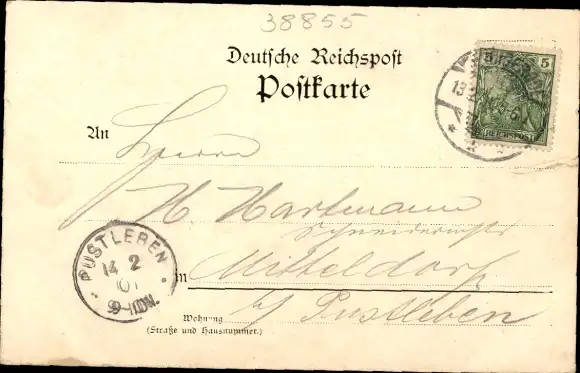 38855
Deutsche Reichspost
Postkarte
5
REICHSPOST
An Herrn
H Hartmann
Schneidermstr
in Mitteldorf
b/ Pustleben
PUSTLEBEN
14 2
01
9-11V.
Wohnung
(Straße und Hausnummer.)